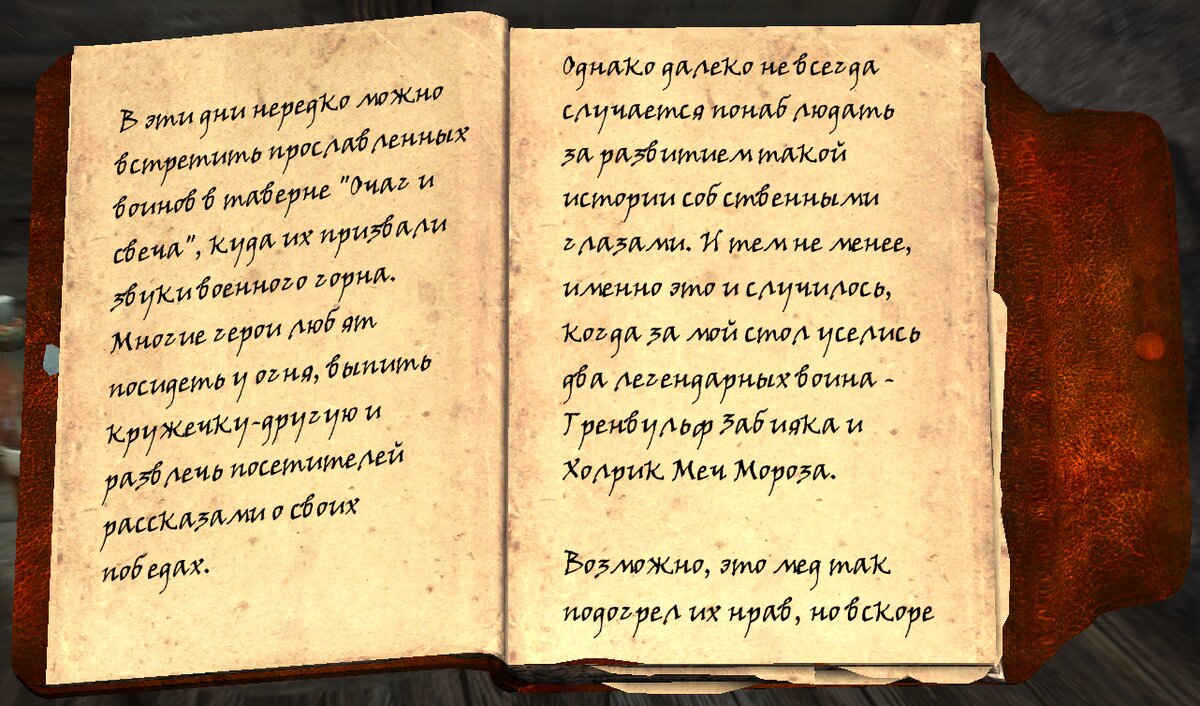 В эти дни нередко можно
встретить прославленных
воинов в таверне "Очаг и
свеча", куда их призвали
звуки военного горна.
Многие герои любят
посидеть у огня, выпить
кружечку-другую и
развлечь посетителей
рассказами о своих
победах.
Однако далеко не всегда
случается понаблюдать
за развитием такой
истории собственными
глазами. И тем не менее,
именно это и случилось,
когда за мой стол уселись
два легендарных воина -
Гренвульф Забияка и
Холрик Меч Мороза.
Возможно, это мед так
подогрел их нрав, но вскоре